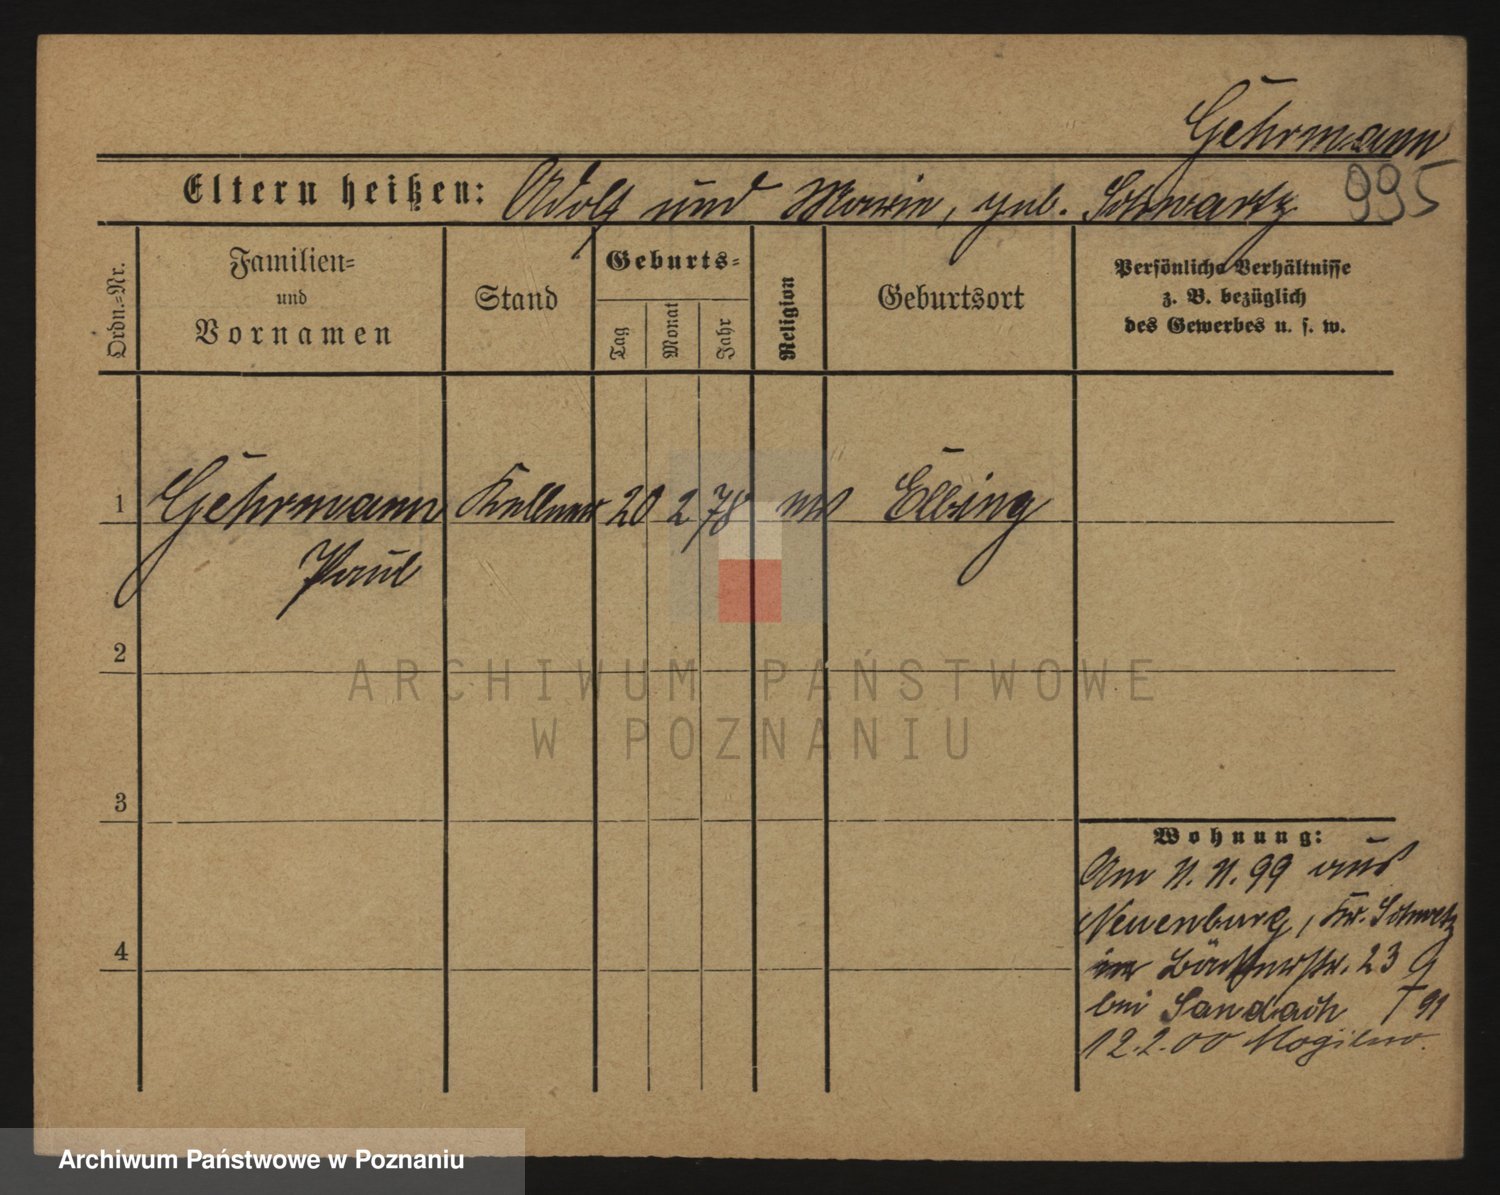 Gehrmann
995
Eltern heißen: Adolf und Marie, geb. Schwartz
Ordn.=Nr.
Familien=
und
Vornamen
Stand
Geburts=
Tag
Monat
Jahr
Religion
Geburtsort
Persönliche Verhältnisse
z. B. bezüglich
des Gewerbes u. s. w.
1 Gehrmann Kellner 20 2 78 Elbing
Paul
2
3
4
Wohnung:
Am 11. 11. 99 aus
Neuenburg, Kr. Schwetz
Bäckerstr. 23
bei Sandach
12.2.00 Mogilno.
ARCHIWUM PAŃSTWOWE
W POZNANIU
Archiwum Państwowe w Poznaniu